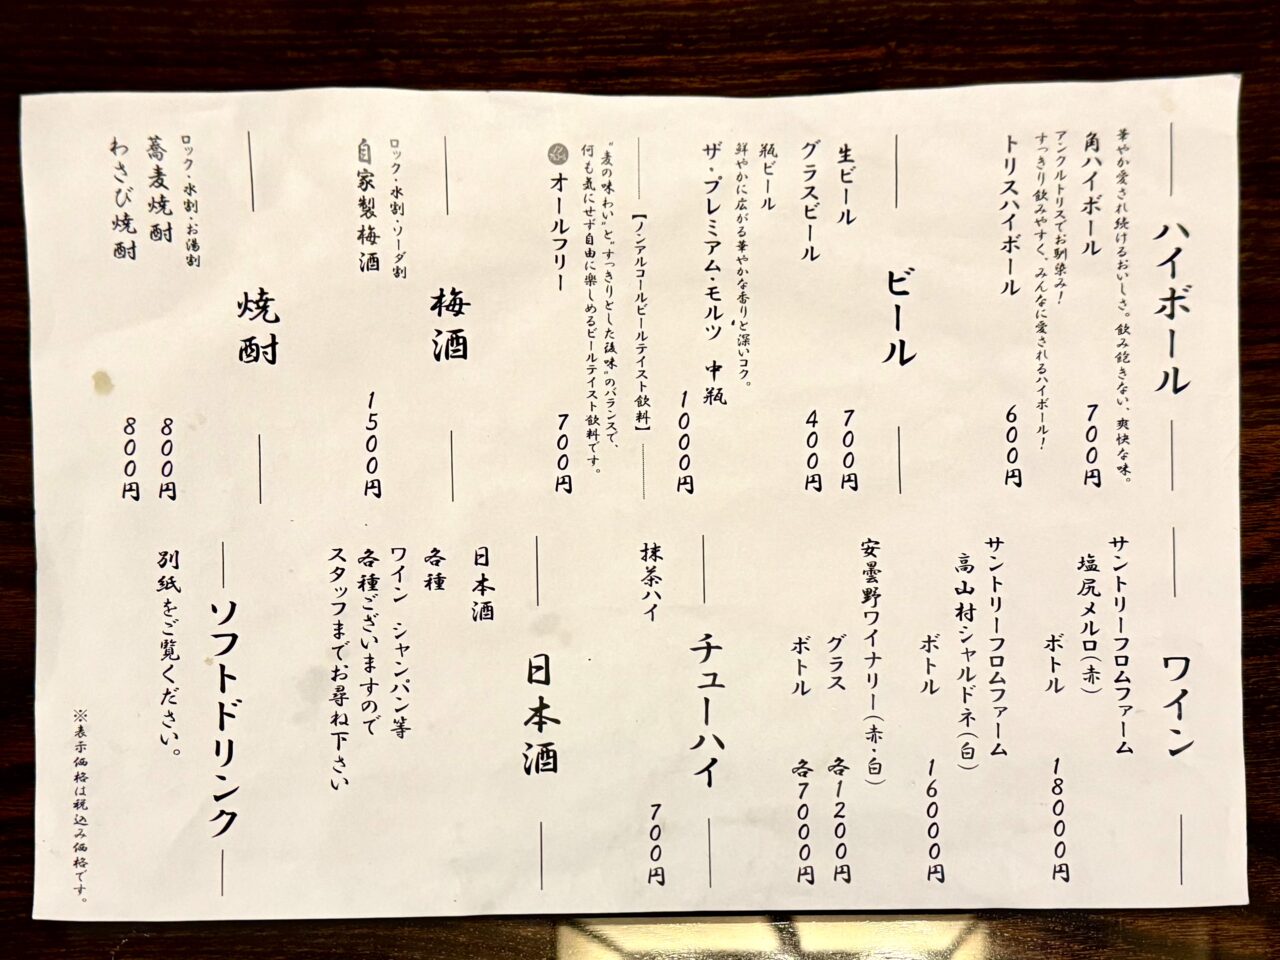 ハイボール
華やか愛され続けるおいしさ。飲み飽きない、爽快な味。
角ハイボール 700円
アンクルトリスでお馴染み!
すっきり飲みやすく、みんなに愛されるハイボール!
トリスハイボール 600円
ビール
生ビール 700円
グラスビール 400円
瓶ビール
鮮やかに広がる華やかな香りと深いコク。
ザ・プレミアム・モルツ 中瓶 1000円
【ノンアルコールビールテイスト飲料】
"麦の味わい"と"すっきりとした後味"のバランスで、
何も気にせず自由に楽しめるビールテイスト飲料です。
オールフリー 700円
梅酒
ロック・水割・ソーダ割
自家製梅酒 1500円
焼酎
ロック・水割・お湯割
蕎麦焼酎 800円
わさび焼酎 800円
ワイン
サントリーフロムファーム
塩尻メルロ(赤)
ボトル 18000円
サントリーフロムファーム
高山村シャルドネ(白)
ボトル 16000円
安曇野ワイナリー(赤・白)
グラス 各1200円
ボトル 各7000円
チューハイ
抹茶ハイ 700円
日本酒
日本酒
各種
ワイン シャンパン等
各種ございますので
スタッフまでお尋ね下さい
ソフトドリンク
別紙をご覧ください。
※表示価格は税込み価格です。